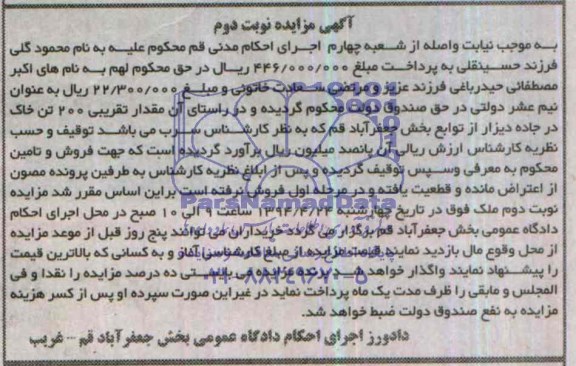 آگهی مزایده نوبت دوم
به موجب نیابت واصله از شعبه چهارم اجرای احکام مدنی قم محکوم علیه به نام محمود گلی
فرزند حسینقلی به پرداخت مبلغ ۴۴۶/۰۰۰/۰۰۰ ریال در حق محکوم لهم به نام های اکبر
مصطفائی حیدرباغی فرزند عزیز و مرتضی سعادت خاتونی و مبلغ ۲۲/۳۰۰/۰۰۰ ریال به عنوان
نیم عشر دولتی در حق صندوق دولت محکوم گردیده و در راستای آن مقدار تقریبی ۲۰۰ تن خاک
در جاده دیزار از توابع بخش جعفرآباد قم که به نظر کارشناس سرب می باشد توقیف و حسب
نظریه کارشناس ارزش ریالی آن پانصد میلیون ریال برآورد گردیده است که جهت فروش و تامین
محکوم به معرفی وسپس توقیف گردیده و پس از ابلاغ نظریه کارشناس به طرفین پرونده مصون
از اعتراض مانده و قطعیت یافته و در مرحله اول فروش نرفته است براین اساس مقرر شد مزایده
نوبت دوم ملک فوق در تاریخ چهارشنبه ۱۳۹۴/۴/۲۴ ساعت ۹ الی ۱۰ صبح در محل اجرای احکام
دادگاه عمومی بخش جعفرآباد قم برگزار می گردد خریداران می توانند پنج روز قبل از موعد مزایده
از محل وقوع مال بازدید نمایند قیمت مزایده از مبلغ کارشناسی آغاز و به کسانی که بالاترین قیمت
را پیشنهاد نمایند واگذار خواهد شد برنده مزایده می بایستی ده درصد مزایده را نقدا و فی
المجلس و مابقی را ظرف مدت یک ماه پرداخت نماید در غیراین صورت سپرده او پس از کسر هزینه
مزایده به نفع صندوق دولت ضبط خواهد شد.
دادورز اجرای احکام دادگاه عمومی بخش جعفرآباد قم --- غریب
ParsNamadData